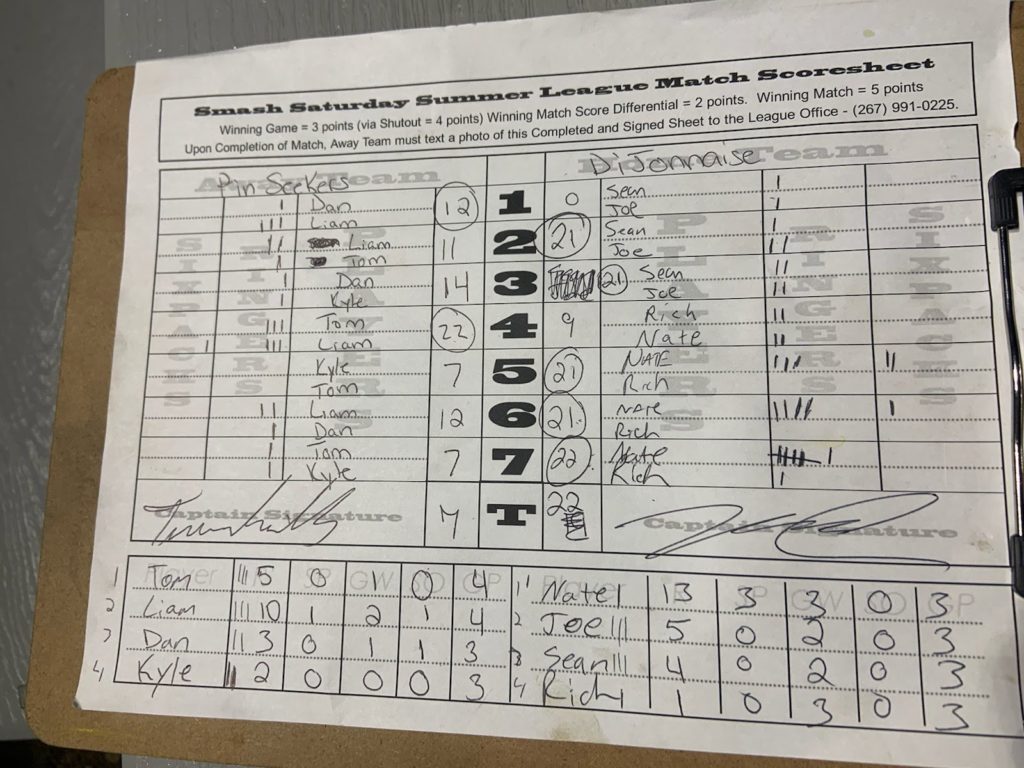 Smash Saturday Summer League Match Scoresheet
Winning Game = 3 points (via Shutout = 4 points) Winning Match Score Differential = 2 points. Winning Match = 5 points
Upon Completion of Match, Away Team must text a photo of this Completed and Signed Sheet to the League Office - (267) 991-0225.
Pin Seekers Away Team DiJonnaise Team
I Dan 12 1 0 Sean I
III Liam Joe I
II Liam 11 2 21 Sean I
I Tom Joe II
I Dan 14 3 21 Sean II
I Kyle Joe II
III Tom 22 4 9 Rich II
I III Liam Nate II
Kyle 7 5 21 NATE IIII II
Tom Rich
II Liam 12 6 21 NATE IIIII I
I Dan Rich
I Tom 7 7 22 Nate I
I Kyle Rich I
SIXPACKS RINGERS PLAYERS PLAYERS RINGERS SIXPACKS
Captain Signature 7 T 22 Captain Signature
1 Tom III 5 0 0 4 1 Nate I 13 3 3 0 3
2 Liam III 10 1 2 1 4 2 Joe III 5 0 2 0 3
3 Dan II 3 0 1 1 3 3 Sean III 4 0 2 0 3
4 Kyle II 2 0 0 0 3 4 Rich I 1 0 3 0 3